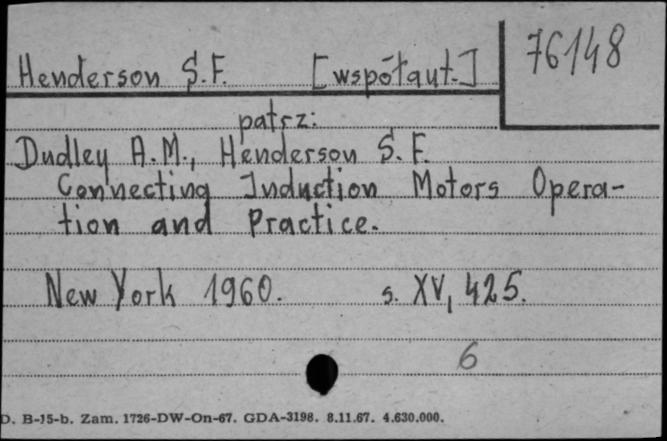 Henderson S.F. [współaut.]
76148
patrz:
Dudley A.M., Henderson S.F.
Connecting Induction Motors Opera-
tion and Practice.
New York 1960. s. XV, 425.
6
D. B-15-b. Zam. 1726-DW-On-67. GDA-3198. 8.11.67. 4.630.000.